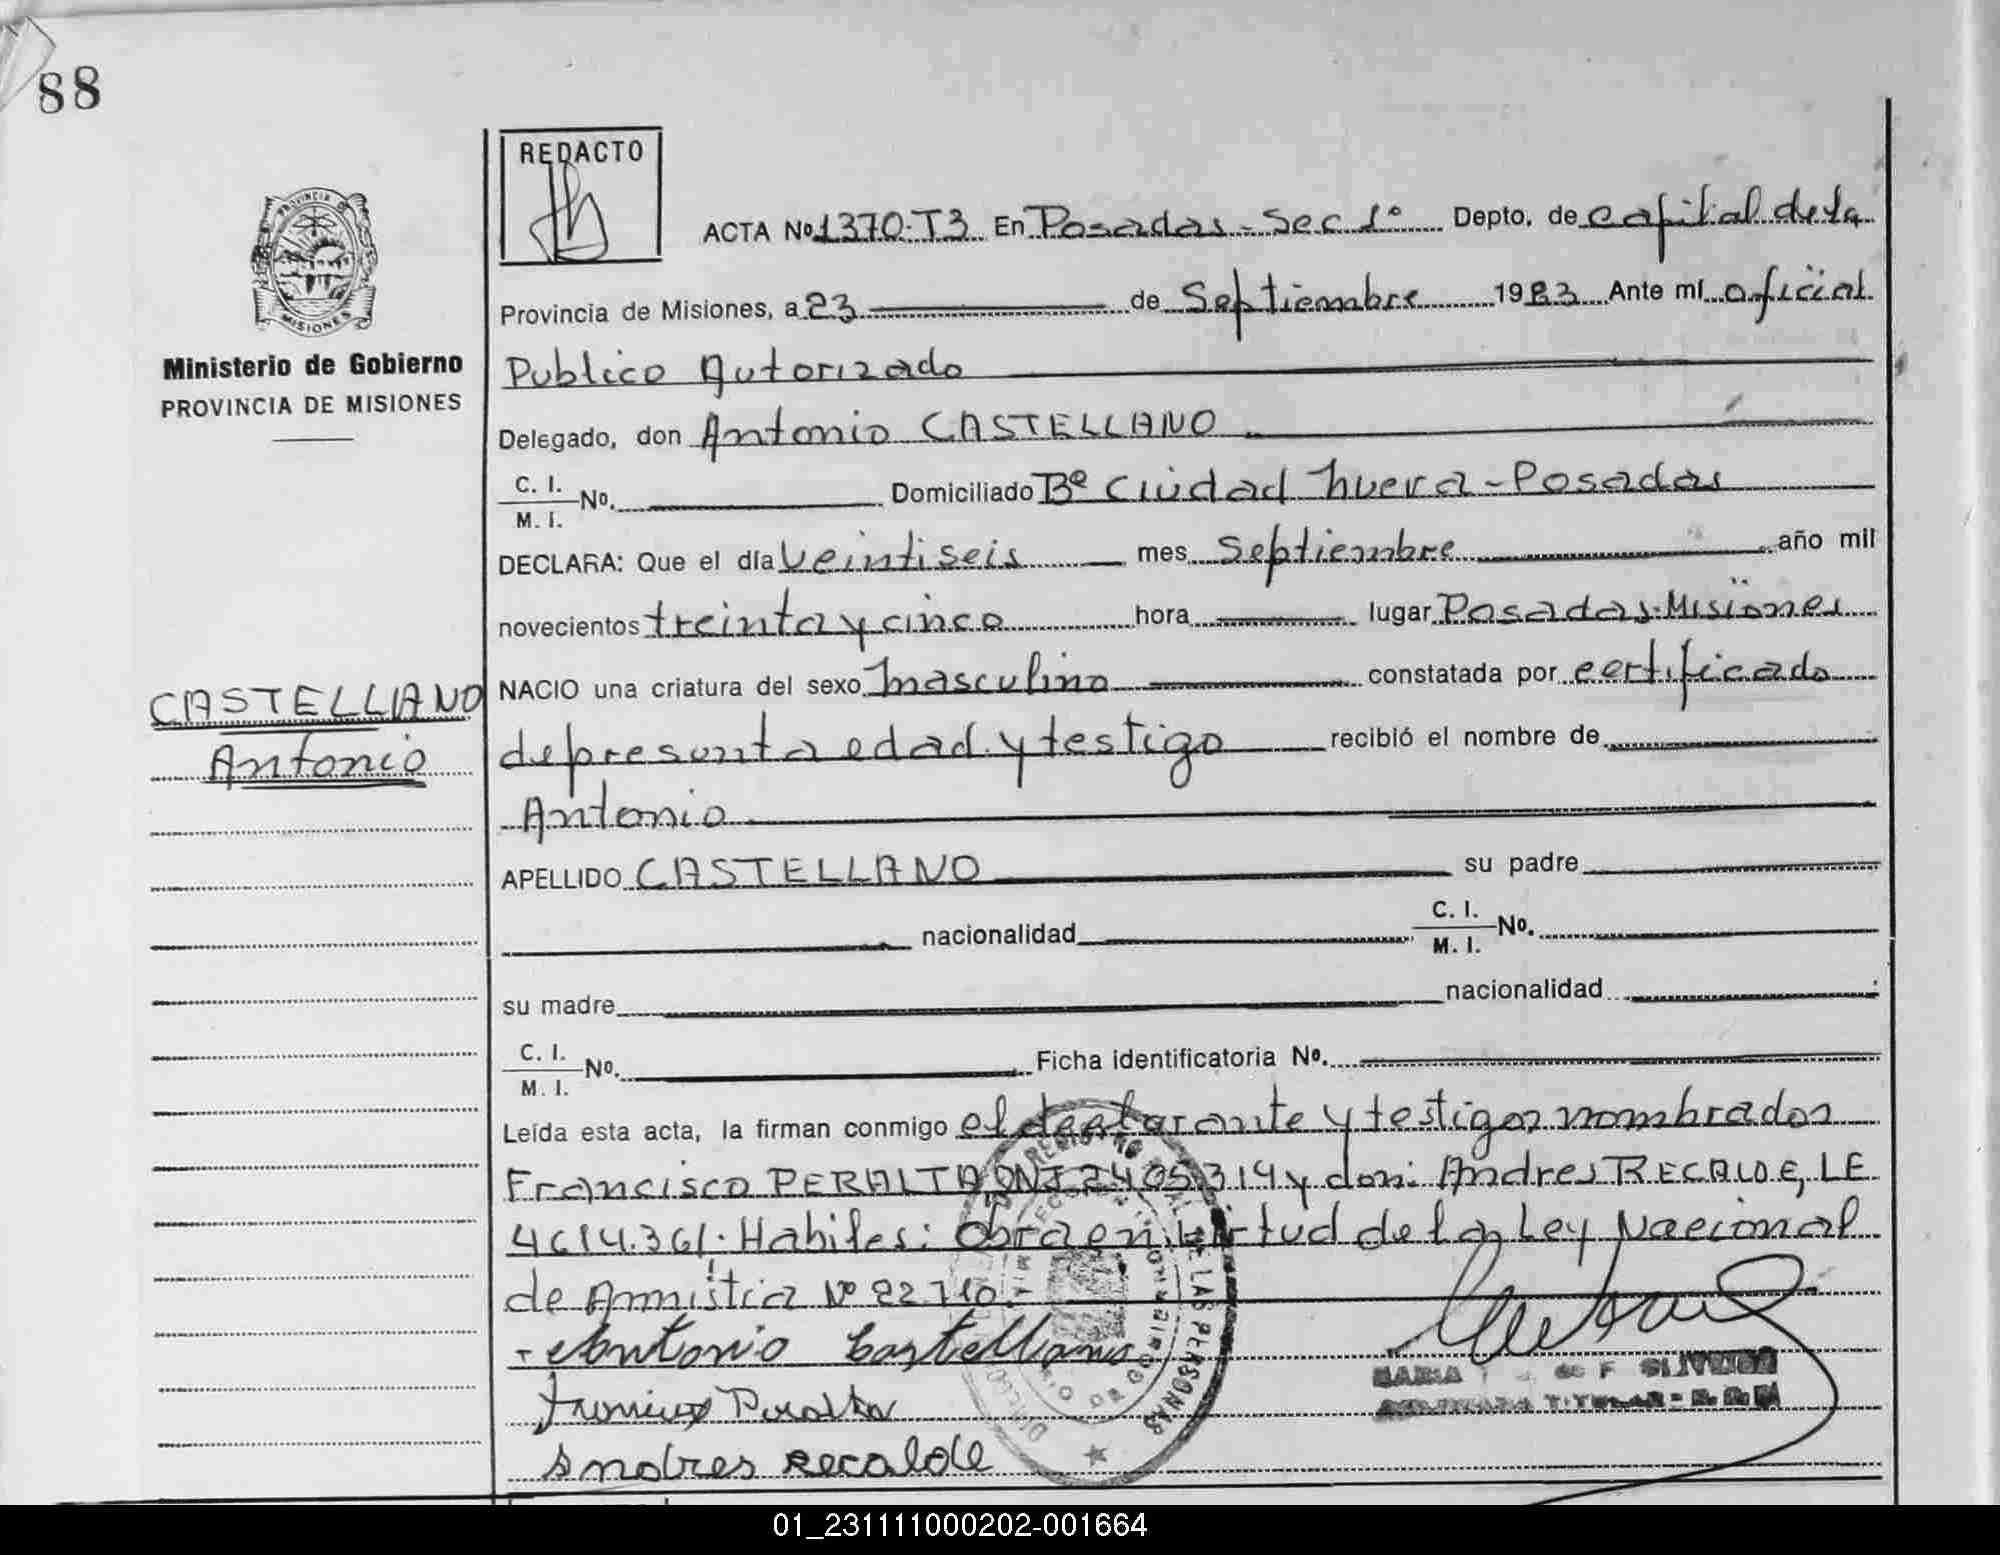 88
REDACTO
PROVINCIA DE
MISIONES
Ministerio de Gobierno
PROVINCIA DE MISIONES
CASTELLANO
Antonio
ACTA Nº 1370-T3 En Posadas - Sec 1º Depto. de capital de la
Provincia de Misiones, a 23 de Septiembre 1983 Ante mí oficial
Publico Autorizado
Delegado, don Antonio CASTELLANO
C. I. / M. I. Nº. Domiciliado Bº Ciudad nueva - Posadas
DECLARA: Que el día veintiseis mes Septiembre año mil
novecientos treinta y cinco hora lugar Posadas - Misiones
NACIO una criatura del sexo masculino constatada por certificado
de presunta edad y testigo recibió el nombre de
Antonio
APELLIDO CASTELLANO su padre
nacionalidad C. I. / M. I. Nº.
su madre nacionalidad
C. I. / M. I. Nº. Ficha identificatoria Nº.
Leída esta acta, la firman conmigo el declarante y testigos nombrados
Francisco PERALTA DNI 2405314 y don: Andres RECALDE, LE
4614.361. Habiles: Obra en virtud de la Ley Nacional
de Amnistia Nº 22.710.-
- Antonio Castellano
Francisco Peralta
Andres Recalde
DE LAS PERSONAS
MARIA de F OLIVEIRA
TITULAR
01_231111000202-001664